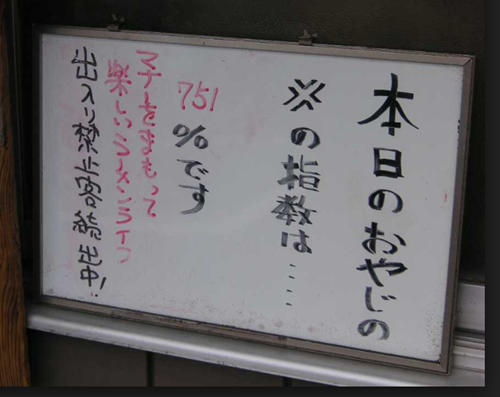 本日のおやじの
※の指数は‥‥
751%です
マナーをまもって
楽しいラーメンライフ
出入り禁止者続出中!